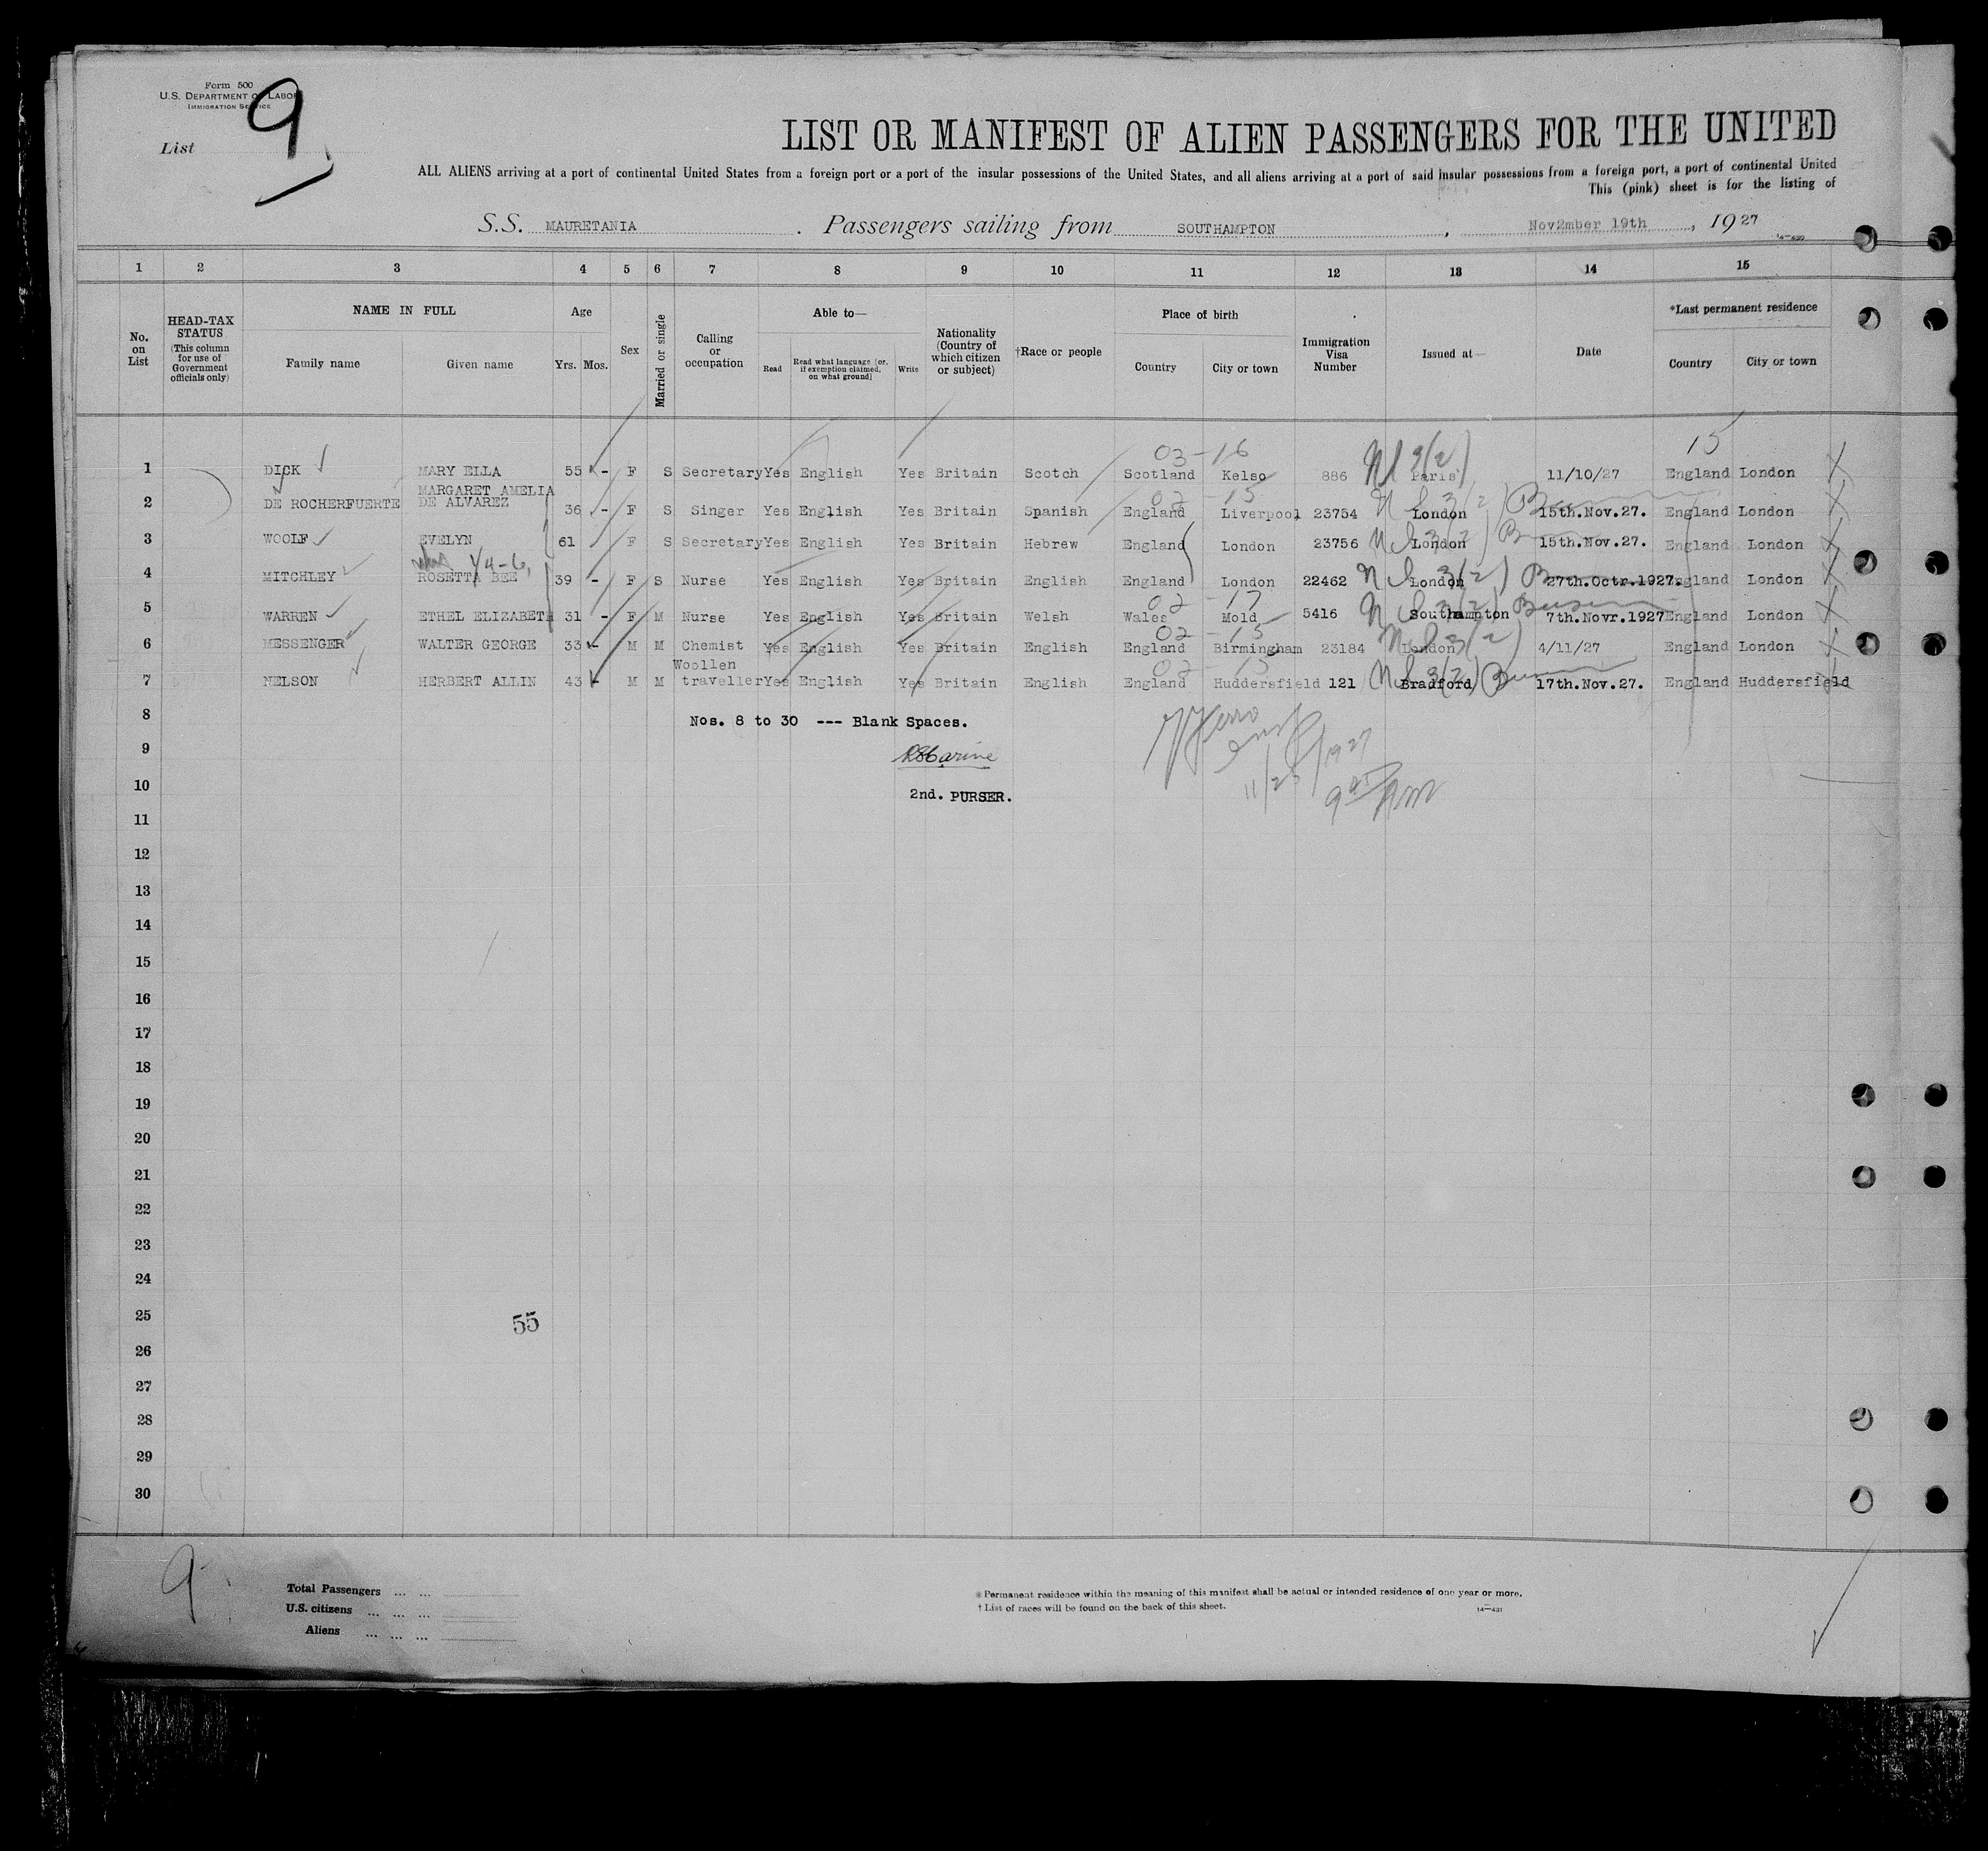 Form 500
U.S. DEPARTMENT OF LABOR
IMMIGRATION SERVICE
List 9
LIST OR MANIFEST OF ALIEN PASSENGERS FOR THE UNITED
ALL ALIENS arriving at a port of continental United States from a foreign port or a port of the insular possessions of the United States, and all aliens arriving at a port of said insular possessions from a foreign port, a port of continental United
This (pink) sheet is for the listing of
S.S. MAURETANIA . Passengers sailing from SOUTHAMPTON , Nov2mber 19th , 19 27
14—430
1 2 3 4 5 6 7 8 9 10 11 12 13 14 15
No. on List
HEAD-TAX STATUS (This column for use of Government officials only)
NAME IN FULL
Family name Given name
Age
Yrs. Mos.
Sex
Married or single
Calling or occupation
Able to—
Read
Read what language [or, if exemption claimed, on what ground]
Write
Nationality (Country of which citizen or subject)
†Race or people
Place of birth
Country City or town
Immigration Visa Number
Issued at—
Date
*Last permanent residence
Country City or town
03-16 15
1 DICK MARY ELLA 55 - F S Secretary Yes English Yes Britain Scotch Scotland Kelso 886 Paris 11/10/27 England London
MARGARET AMELIA
02-15
2 DE ROCHERFUERTE DE ALVAREZ 36 - F S Singer Yes English Yes Britain Spanish England Liverpool 23754 London 15th.Nov.27. England London
3 WOOLF EVELYN 61 F S Secretary Yes English Yes Britain Hebrew England London 23756 London 15th.Nov.27. England London
4 MITCHLEY ROSETTA BEE 39 - F S Nurse Yes English Yes Britain English England London 22462 London 27th.Octr.1927. England London
02-17
5 WARREN ETHEL ELIZABETH 31 - F M Nurse Yes English Yes Britain Welsh Wales Mold 5416 Southampton 7th.Novr.1927 England London
02-15
6 MESSENGER WALTER GEORGE 33 - M M Chemist Yes English Yes Britain English England Birmingham 23184 London 4/11/27 England London
Woollen
02-15
7 NELSON HERBERT ALLIN 43 - M M traveller Yes English Yes Britain English England Huddersfield 121 Bradford 17th.Nov.27. England Huddersfield
8 Nos. 8 to 30 --- Blank Spaces.
9
11/25/1927
10 2nd. PURSER.
9 45 AM
11
12
13
14
15
16
17
18
19
20
21
22
23
24
25
55
26
27
28
29
30
9
Total Passengers ... ...
U.S. citizens ... ... ...
Aliens ... ... ...
* Permanent residence within the meaning of this manifest shall be actual or intended residence of one year or more.
† List of races will be found on the back of this sheet.
14—431